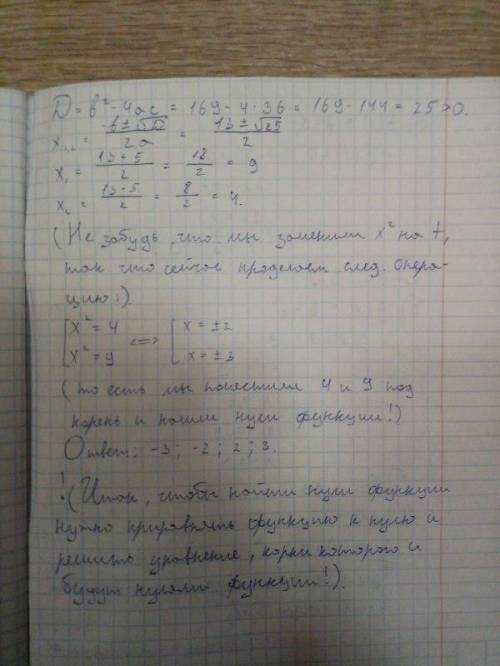 D = b² - 4ac = 169 - 4·36 = 169 - 144 = 25 > 0.
x₁,₂ = (-b ± √D)/2a = (13 ± √25)/2
x₁ = (13+5)/2 = 18/2 = 9
x₂ = (13-5)/2 = 8/2 = 4.
(Не забудь, что мы заменили x² на t,
так что сейчас проделаем след. опера-
цию:)
[x² = 4 <=> [x = ±2
[x² = 9 [x = ±3
(то есть мы поместили 4 и 9 под
корень и нашли нули функции!)
Ответ: -3; -2; 2; 3.
!(Итак, чтобы найти нули функции
нужно приравнять функцию к нулю и
решить уравнение, корни которого и
будут нулями функции!).